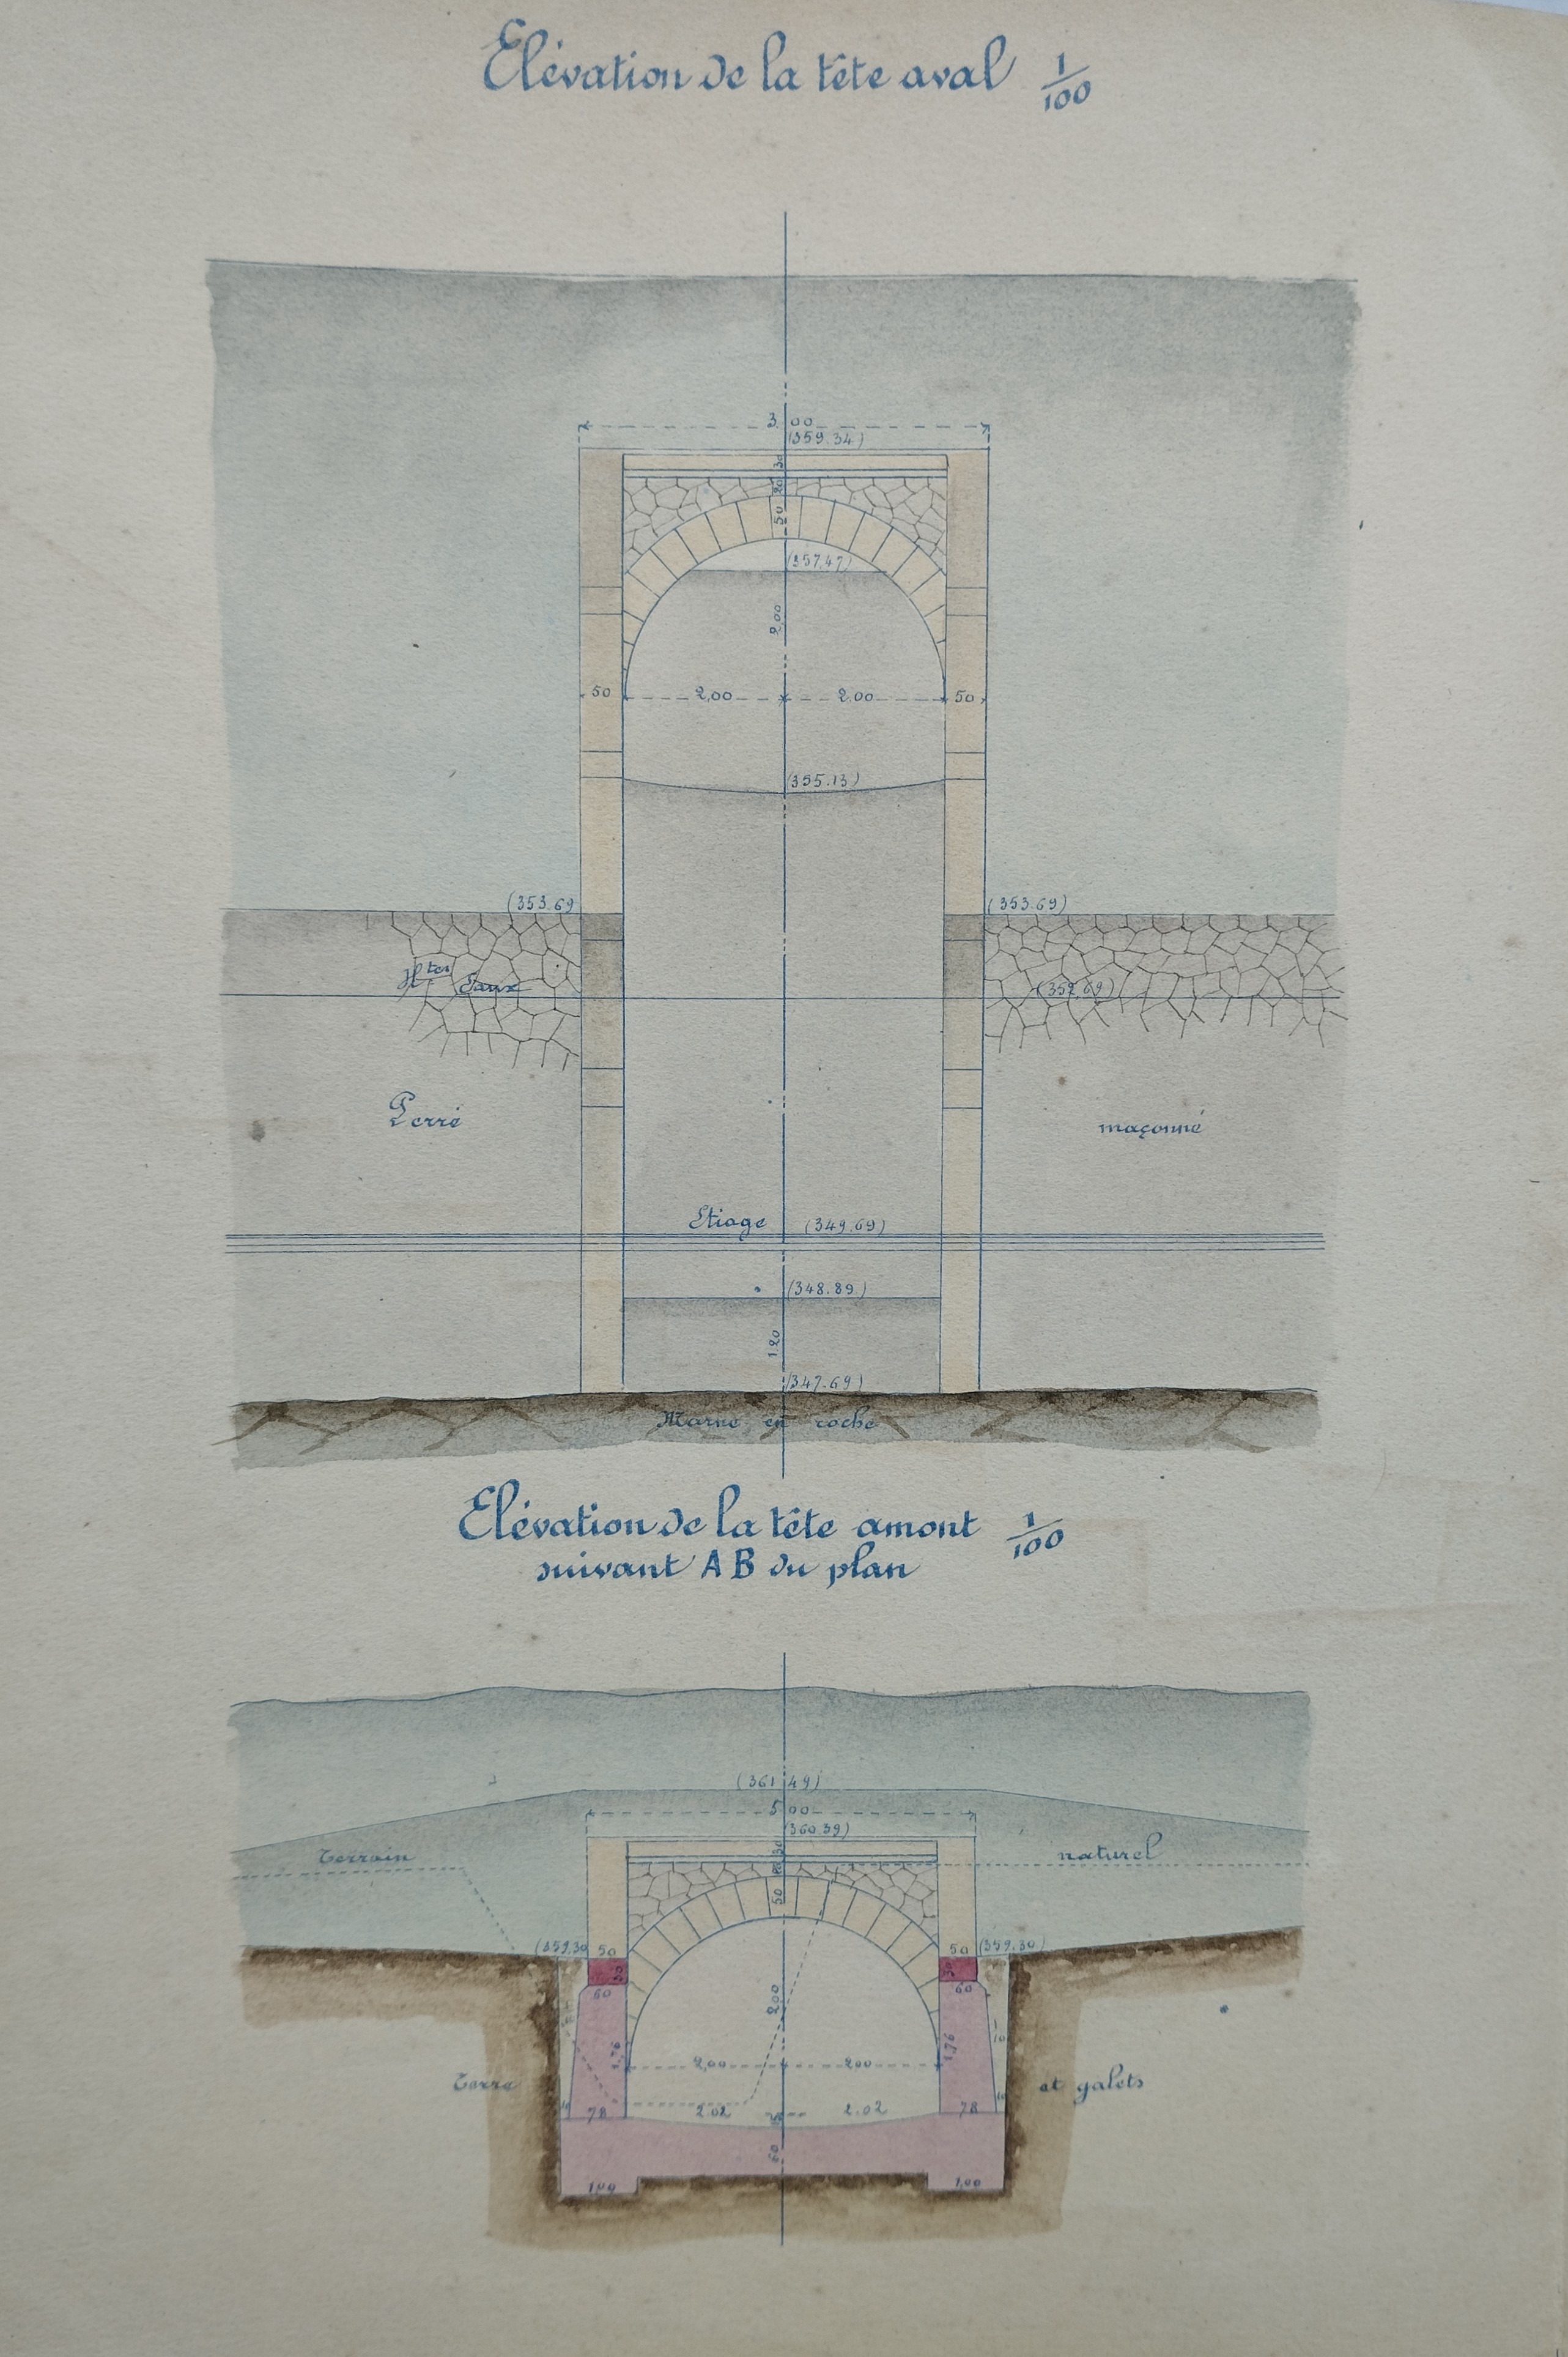 Elévation de la tête aval 1/100
3,00
(359.34)
30
20
50
(357,47)
2,00
50 2,00 2,00 50
(355.13)
(353.69) (353.69)
Htes Eaux (352,69)
Perré maçonné
Etiage (349.69)
(348.89)
1 20
(347.69)
Marne en roche
Elévation de la tête amont 1/100
suivant A B du plan
(361.49)
5,00
(360.39)
Terrain naturel
30
50
(359.30) 50 50 (359.30)
60 60
2,00
1,76 1,76
2,00 2,00
Terre et galets
78 2.02 2.02 78
60
1,00 1,00